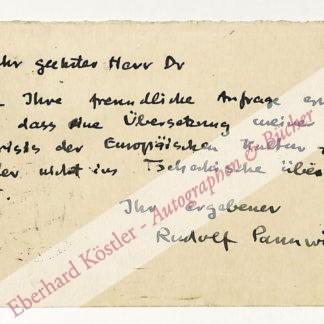 hr geehrter Herr Dr
Ihre freundliche Anfrage er
dass eine Übersetzung meiner
risis der Europäischen Kultur
der nicht ins Tschechische über
Ihr ergebener
Rudolf Pannwi
Eberhard Köstler - Autographen & Bücher